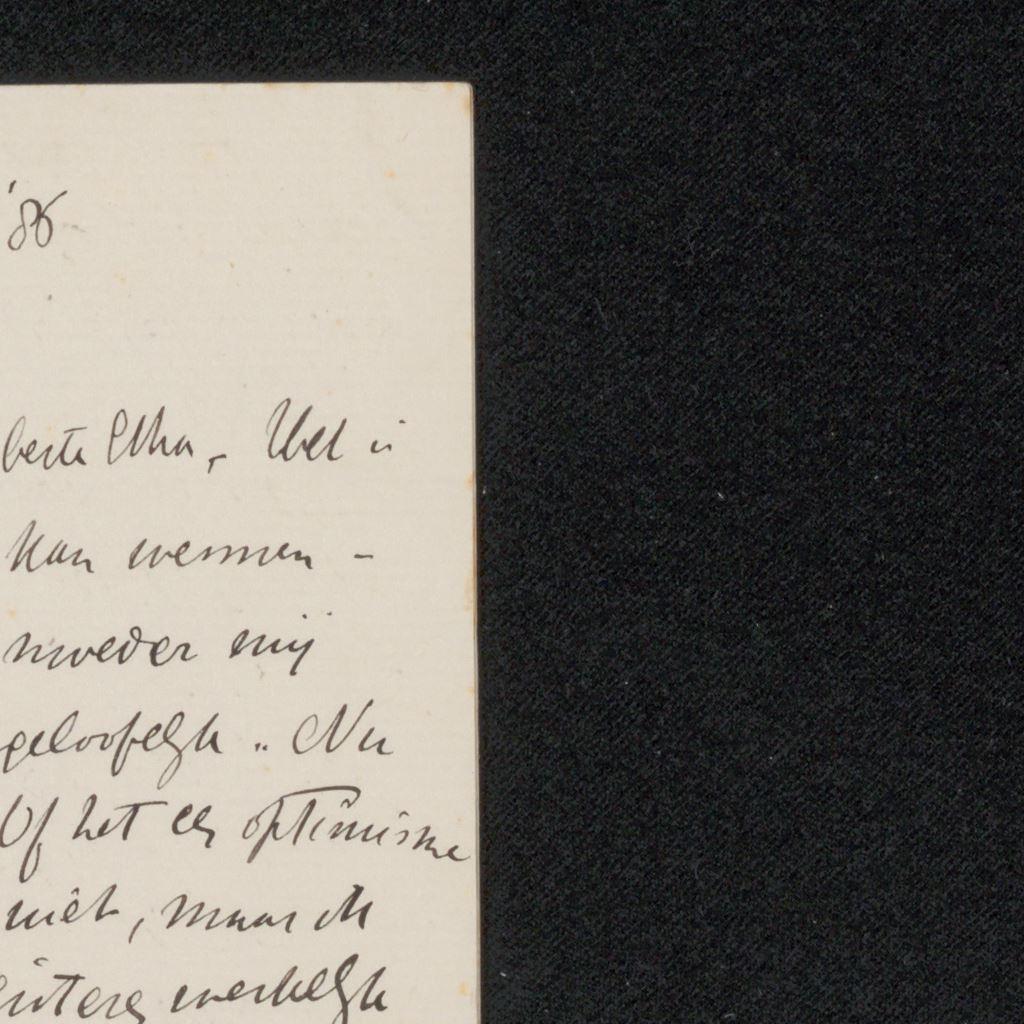 '86
beste Etha, - Wel i
kan wennen -
moeder mij
geloofelijk .. Nu
Of het een optimisme
niet, maar ik
werkelijk